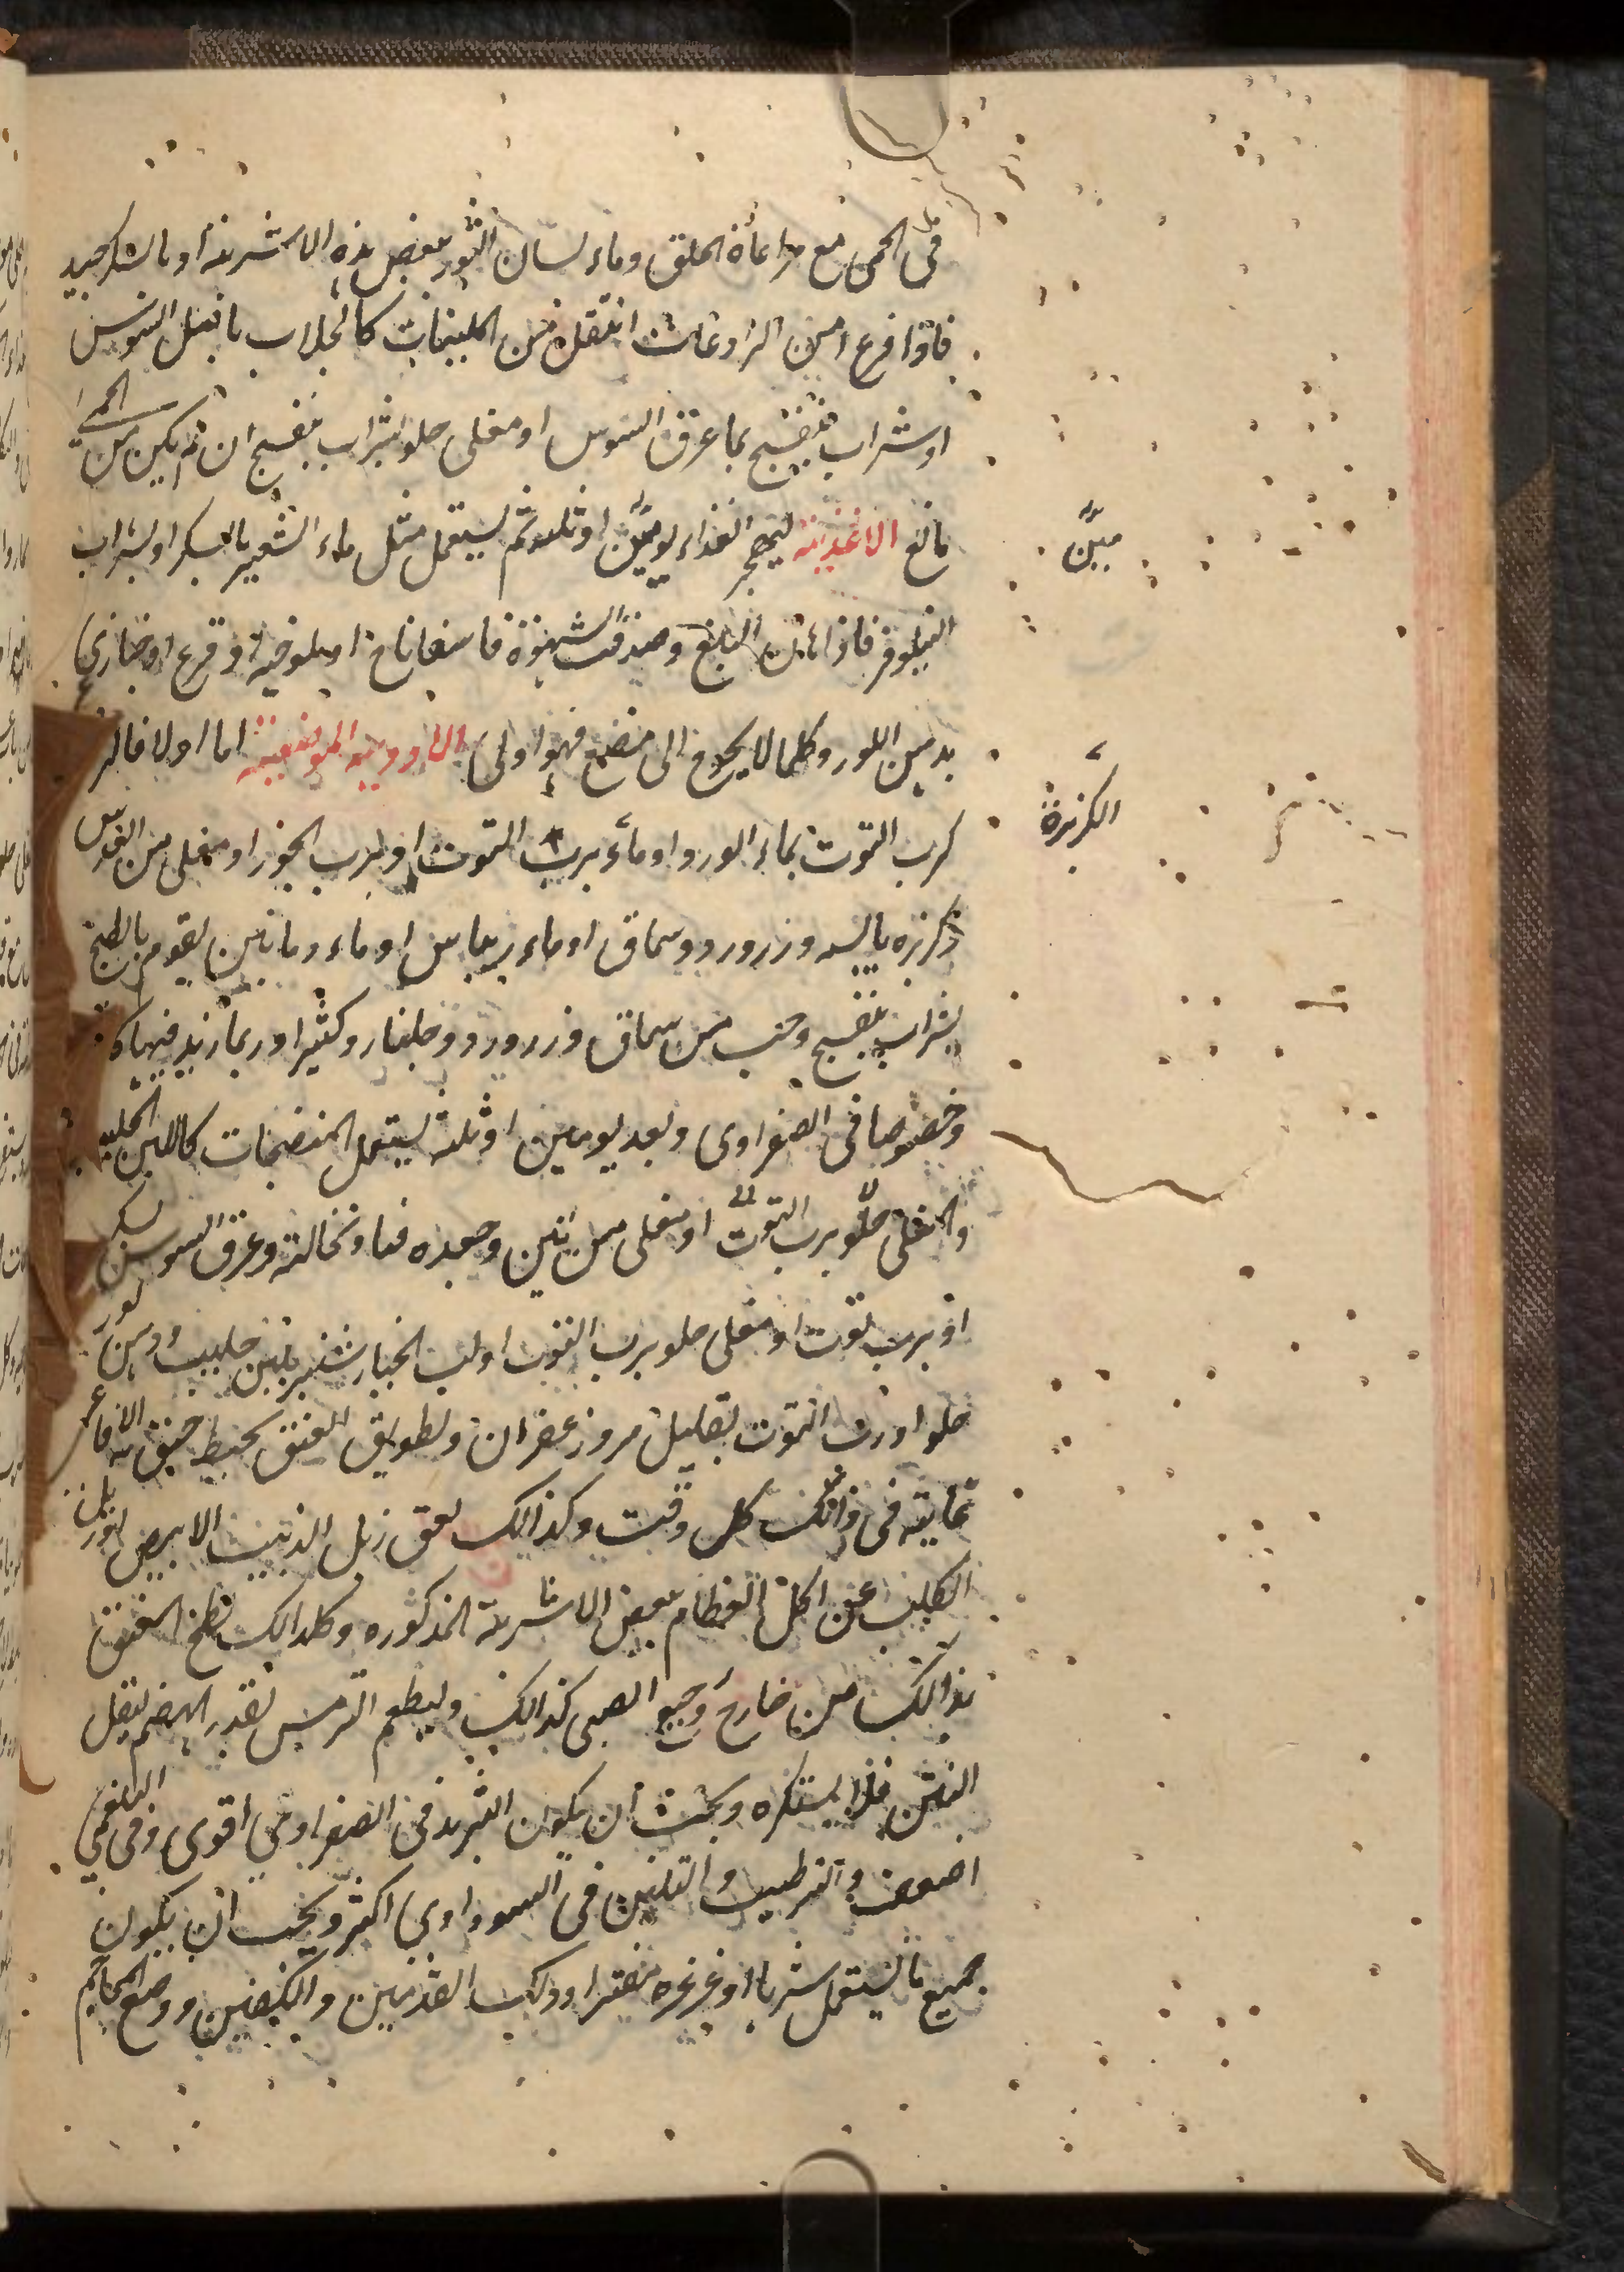 فى الحمى مع مراعاة الحلق وماء لسان الثور ببعض هذه الاشربة او بالسكر جيد
فاذا فرغ امن الرادعات انتقل من الملينات كالجلاب بانيل السوس
او شراب بنفسج بماء عرق السوس او مغلى حلو بشراب بنفسج ان لم يكن من الحمى
مانع الاغذية ليهجر الغذاء يومين او ثلثه ثم ليستعمل مثل ماء الشعير بالسكر او بشراب
النيلوفر فاذا امن المانع وصدقت الشهوة فاسفاناخ او ملوخيه او قرع او خبازى
بدهن اللوز وكلما لا يحوج الى مضغ فهو اولى الادويه الموضعية اما اولا فالر
كرب التوت بماء الورد او ماء برب التوت او برب الجوز او مغلى من العدس
وكزبره يابسه وزرورد وسماق او ماء ريباس او ماء رمانين يقوم بالطبخ
بشراب بنفسج وحب من سماق وزرورد وجلنار وكثيرا وربما زيد فيها كا
وخصوصا فى الصفراوى وبعد يومين او ثلثه يستعمل المنضجات كاللبن الحليب
والمغلى حلو برب التوت او مغلى من تين وجعده ونخالة وعرق السوس بسكر
او برب توت او مغلى حلو برب التوت او لب الخيار شنبر بلبن حليب ودهن لوز
حلو او رب التوت بقليل مر وزعفران وتطويق العنق بخيط خنق به الافاعى
غايته فى ذلك كل وقت وكذالك لعق زبل الذيب الابيض او زبل
الكلب عن اكل العظام ببعض الاشربة المذكوره وكذالك لطخ العنق
بذالك من خارج ورجيع الصبى كذالك وليطعم الترمس بقدر الهضم ليقل
النتن فلا يستكره ويجب ان يكون التبريد فى الصفراوى اقوى وفى البلغمى
اضعف والترطيب والتليين فى السوداوى اكثر ويجب ان يكون
جميع ما يستعمل شربا او غرغره مفترا ودلك القدمين والكفين ووضع المحاجم
مبيَّن
الكزبرة